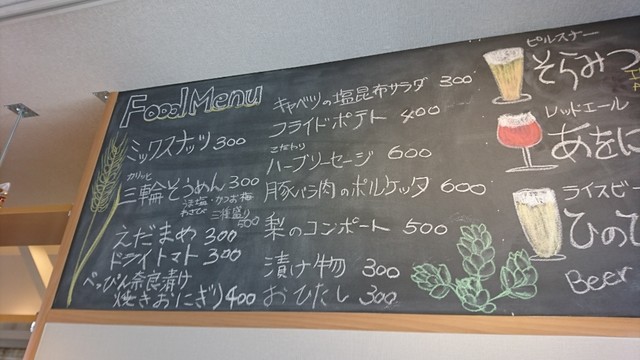 Food Menu
ミックスナッツ 300
カリッと
三輪そうめん 300
うま塩・かつお梅
わさび 三種盛り
500
えだまめ 300
ドライトマト 300
べっぴん奈良漬け
焼きおにぎり 400
キャベツの塩昆布サラダ 300
フライドポテト 400
こだわり
ハーブソーセージ 600
豚バラ肉のポルケッタ 600
梨のコンポート 500
漬け物 300
おひたし 300
ピルスナー
そらみつ
レッドエール
あをに
ライスビ
ひので
Beer